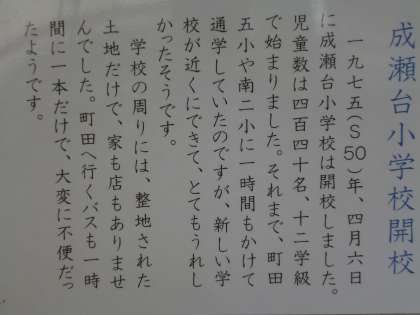 成瀬台小学校開校
一九七五(S50)年、四月六日
に成瀬台小学校は開校しました。
児童数は四百四十名、十二学級
で始まりました。それまで、町田
五小や南二小に一時間もかけて
通学していたのですが、新しい学
校が近くにできて、とてもうれし
かったそうです。
学校の周りには、整地された
土地だけで、家も店もありませ
んでした。町田へ行くバスも一時
間に一本だけで、大変に不便だっ
たようです。